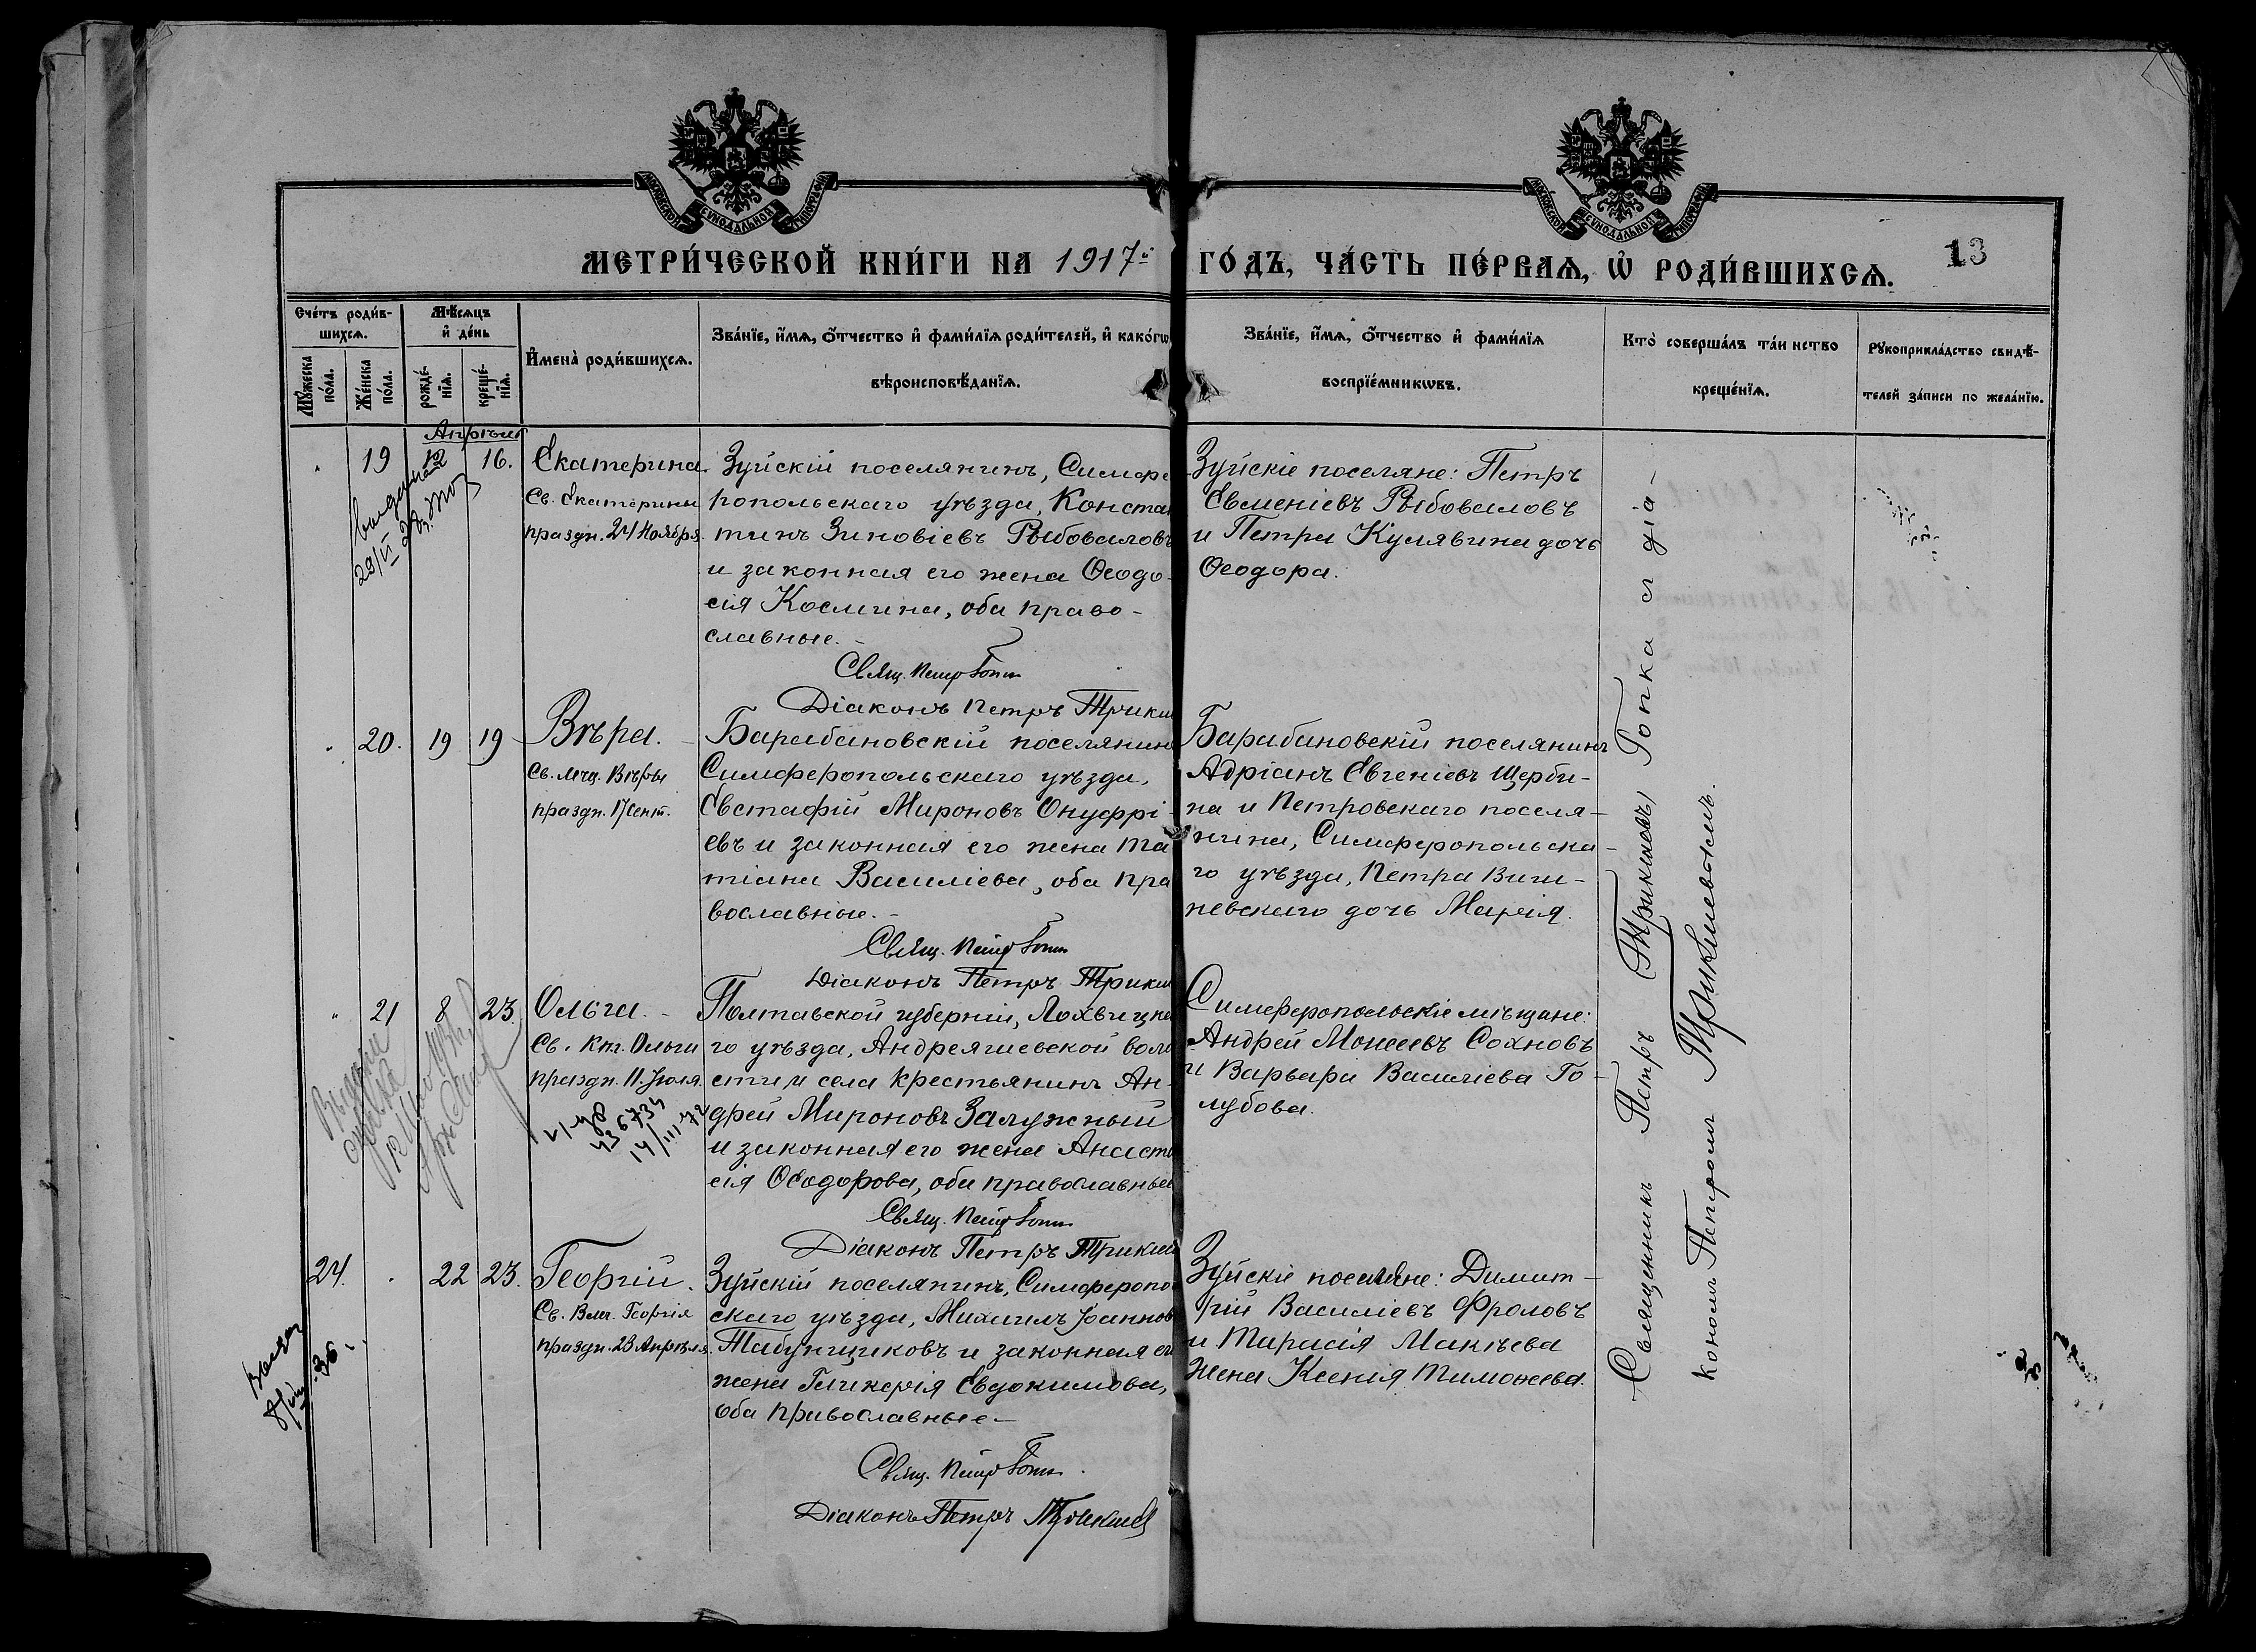 МОСКОВСКОЙ СѴНОДАЛЬНОЙ ТИПОГРАФІИ
МОСКОВСКОЙ СѴНОДАЛЬНОЙ ТИПОГРАФІИ
МЕТРИ́ЧЕСКОЙ КНИ́ГИ НА 1917й ГО́ДЪ, ЧА́СТЬ ПЕ́РВАѦ, Ѡ҆ РОДИ́ВШИХСѦ.
13
Сче́тъ роди́в-
шихсѧ.
Мꙋ́жеска
по́ла.
Же́нска
по́ла.
Мѣ́сѧцъ
и҆ де́нь
рожде́-
нїѧ.
креще́-
нїѧ.
И҆мена̀ роди́вшихсѧ.
Зва́нїе, и҆́мѧ, ѻ҆́тчество и҆ фами́лїѧ роди́телей, и҆ како́гѡ
вѣроисповѣ́данїѧ.
Зва́нїе, и҆́мѧ, ѻ҆́тчество и҆ фами́лїѧ
воспрїе́мникѡвъ.
Кто̀ соверша́лъ та́инство
креще́нїѧ.
Рꙋкоприкла́дство свидѣ́-
телей за́писи по жела́нїю.
Апрѣль
19
12
16.
Екатерина
Св. Екатерины
праздн. 24 Ноября.
Зуйскій поселянинъ, Симфе
ропольскаго уѣзда, Конста
тинъ Зиновіевъ Рыбоваловъ
и законная его жена Ѳеодо-
сія Космина, оба право-
славные.
Свящ. Петр Гопка
Діаконъ Петръ Трикил
Зуйскіе поселяне: Петръ
Евменіевъ Рыбоваловъ
и Петра Кулявина дочь
Ѳеодора.
20.
19
19
Вѣра.
Св. мчц. Вѣры
праздн. 17 Сент.
Барабановскій поселянинъ
Симферопольскаго уѣзда,
Евстафій Мироновъ Онуфрі-
евъ и законная его жена Та
тіана Василіева, оба пра
вославные.
Свящ. Петр Гопка
Діаконъ Петръ Трикил
Барабановскій поселянинъ
Адріанъ Евгеніевъ Щерби-
на и Петровскаго поселя-
нина, Симферопольска-
го уѣзда, Петра Виш-
невскаго дочь Марія.
21
8
23.
Ольга.
Св. Кн. Ольги
праздн. 11. Іюля.
14/III 72
Полтавской губерніи, Лохвицка
го уѣзда, Андреяшевской воло
сти и села крестьянинъ Ан-
дрей Мироновъ Залужный
и законная его жена Анаста
сія Ѳеодорова, оба православные
Свящ. Петр Гопка
Діаконъ Петръ Трикил
Симферопольскіе мѣщане:
Андрей Моисеевъ Сохновъ
и Варвара Василіева Го-
лубова.
24.
22
23.
Георгій.
Св. Влм. Георгія
праздн. 23 Апрѣля.
Зуйскій поселянинъ, Симферопо
скаго уѣзда, Михаилъ Іоаннов
Табунщиковъ и законная его
жена Гликерія Евдокимова,
оба православные
Свящ. Петр Гопка
Діаконъ Петръ Трикил
Зуйскіе поселяне: Димит-
рій Василіевъ Фроловъ
и Тарасія Макѣева
жена Ксенія Тимофеева.
Священникъ Петръ Гопка съ діа-
кономъ Петромъ Трикилевымъ.